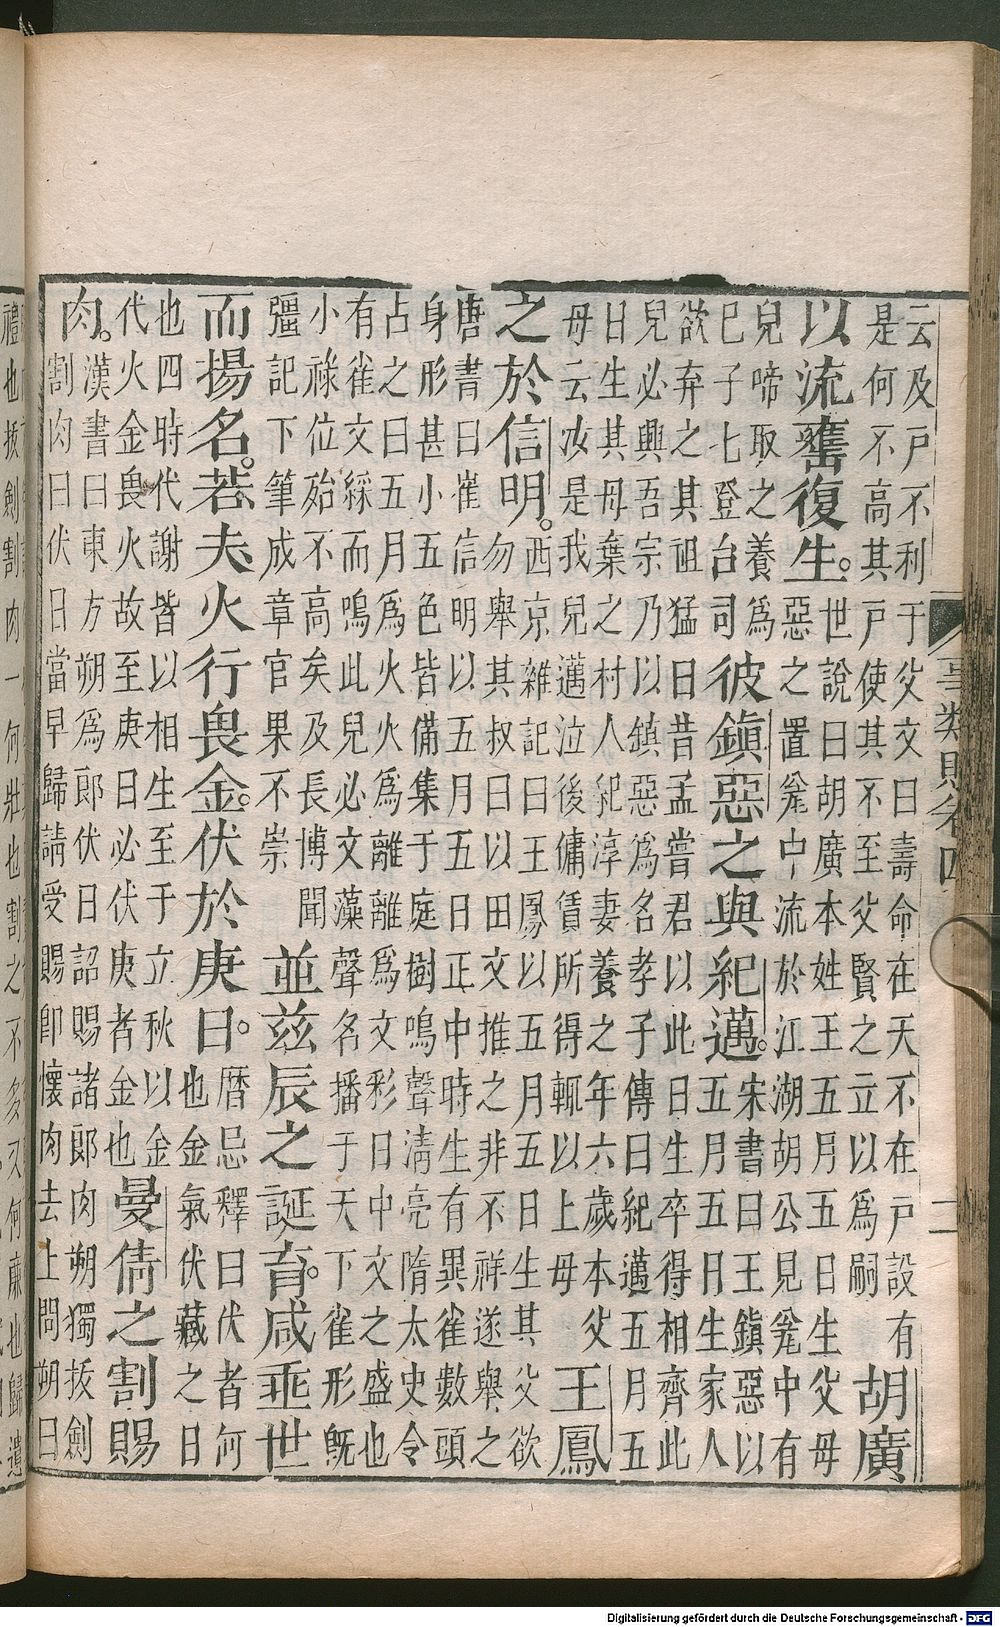 云及戶不利于父文曰壽命在天不在戶設有
是何不高其戶使其不至父賢之立以為嗣
胡廣
以流甕復生。
世說曰胡廣本姓王五月五日生父母
惡之置瓮中流於江湖胡公見瓮中有
兒啼取之養為
已子七登台司
彼鎮惡之與紀邁。
宋書曰王鎮惡以
五月五日生家人
欲弃之其祖猛曰昔孟嘗君以此日生卒得相齊此
兒必興吾宗乃以鎮惡為名孝子傳曰紀邁五月五
日生其母棄之村人紀淳妻養之年六歲本父
母云汝是我兒邁泣後傭賃所得輒以上母
王鳳
之於信明。
西京雜記曰王鳳以五月五日生其父欲
勿舉其叔曰以田文推之非不祥遂舉之
唐書曰崔信明以五月五日正中時生有異雀數頭
身形甚小五色皆備集于庭樹鳴聲清亮隋太史令
占之曰五月為火火為離離為文彩日中文之盛也
有雀文綵而鳴此兒必文藻聲名播于天下雀形既
小祿位殆不高矣及長博聞
彊記下筆成章官果不崇
並茲辰之誕育。咸乖世
而揚名。若夫火行畏金。伏於庚日。
曆忌釋曰伏者何
也金氣伏藏之日
也四時代謝皆以相生至于立秋以金
代火金畏火故至庚日必伏庚者金也
曼倩之割賜
肉。
漢書曰東方朔為郎伏日詔賜諸郎肉朔獨拔劍
割肉曰伏日當早歸請受賜即懷肉去上問朔曰
事類賦卷四
二
禮也拔劍割肉一何壯也割之不多又何廉也歸遺
Digitalisierung gefördert durch die Deutsche Forschungsgemeinschaft - DFG